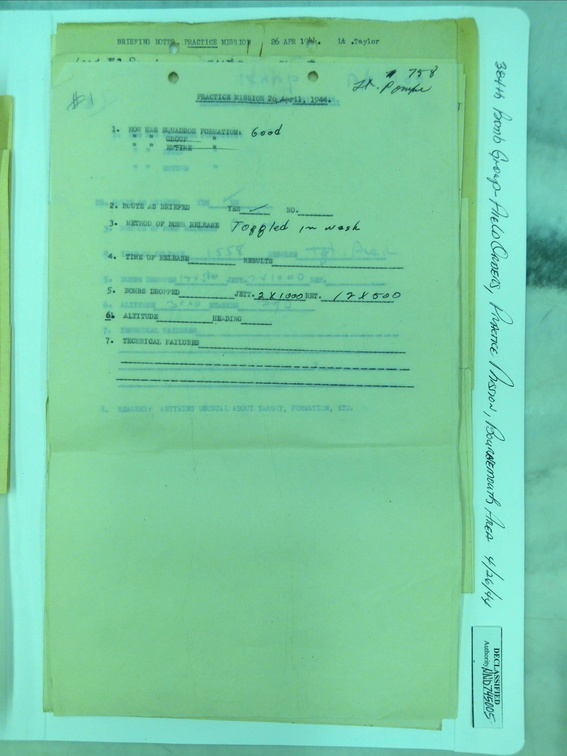 BRIEFING NOTES, PRACTICE MISSION 26 APR 1944. Lt .Taylor
# 758
Lt. Pompe
#1
PRACTICE MISSION 26 April, 1944.
1. HOW WAS SQUADRON FORMATION: Good
" " GROUP "
" " ENTIRE "
2. ROUTE AS BRIEFED YES ✓ NO.
3. METHOD OF BOMB RELEASE Toggled in wash
4. TIME OF RELEASE RESULTS
5. BOMBS DROPPED JETT. 2 X 1000 RET. 12 X 500
6. ALTITUDE HEADING
7. TECHNICAL FAILURES
8. REMARKS: ANYTHING GENERAL ABOUT TARGET, FORMATION, ETC.
384th Bomb Group - Field Orders, Practice Mission, Bournemouth Area 4/26/44
DECLASSIFIED
Authority NND745005